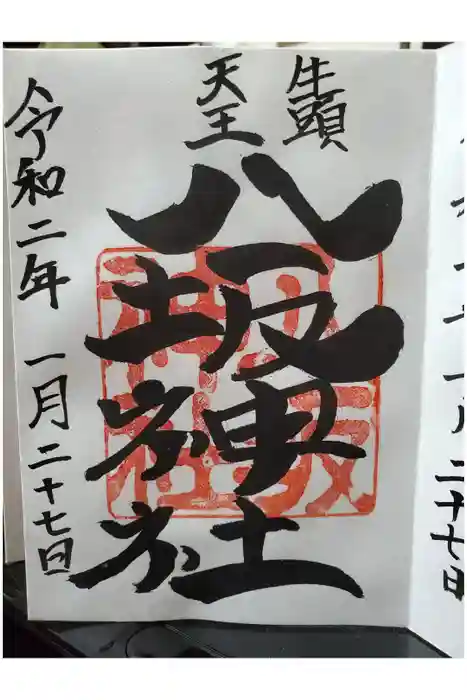 牛頭
天王
八坂神社
八坂
神社
令和二年 一月二十七日
二十七日